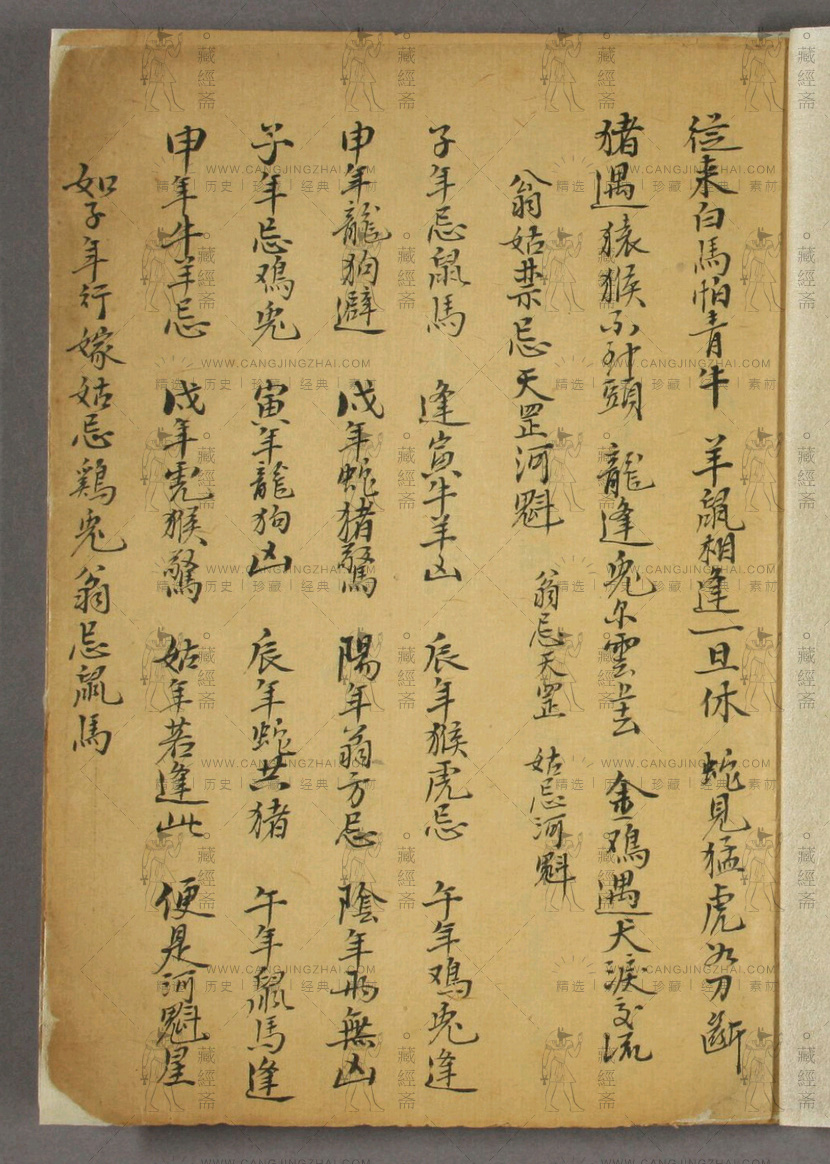 從来白馬怕青牛 羊鼠相逢一旦休 蛇見猛虎如刀斷
猪遇猿猴不到頭 龍逢兎尔雲上去 金鳮遇犬淚交流
翁姑禁忌天罡河魁 翁忌天罡 姑忌河魁
子年忌鼠馬 逢寅牛羊凶 辰年猴虎忌 午年鳮兎逢
申年龍狗避 戌年蛇猪驚 陽年翁方忌 陰年両無凶
子年忌鳮兎 寅年龍狗凶 辰年蛇共猪 午年鼠馬逢
申年牛羊忌 戌年虎猴驚 姑年若逢此 便是河魁星
如子年行嫁姑忌鷄兎翁忌鼠馬